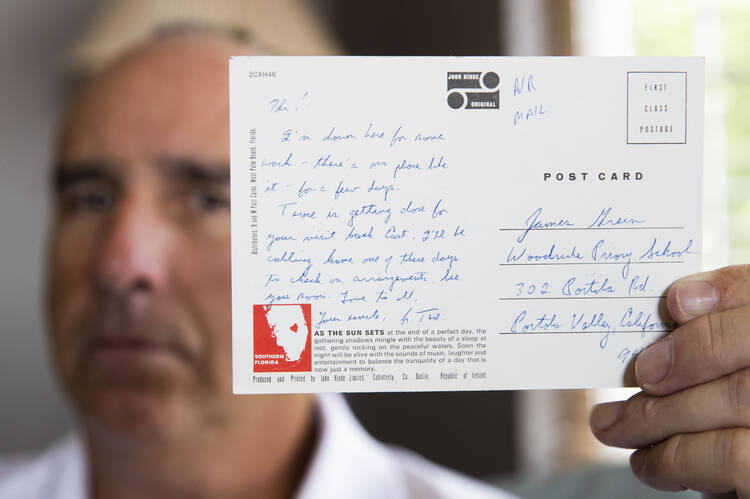 2CXH46
JOHN HINDE
ORIGINAL
AIR
MAIL
FIRST
CLASS
POSTAGE
POST CARD
I'm down here for some
work - there's no place like
it - for a few days.
Time is getting close for
your visit back East. I'll be
calling home one of these days
to check on arrangements. See
you soon. Love to all,
Your uncle, fr. Ted
James Grein
Woodside Priory School
302 Portola Rd.
Portola Valley California
Distributors: D and M Post Cards, West Palm Beach, Florida.
SOUTHERN
FLORIDA
AS THE SUN SETS at the end of a perfect day, the
gathering shadows mingle with the beauty of a sloop at
rest, gently rocking on the peaceful waters. Soon the
night will be alive with the sounds of music, laughter and
entertainment to balance the tranquility of a day that is
now just a memory.
Produced and Printed by John Hinde Limited, Cabinteely, Co. Dublin, Republic of Ireland.